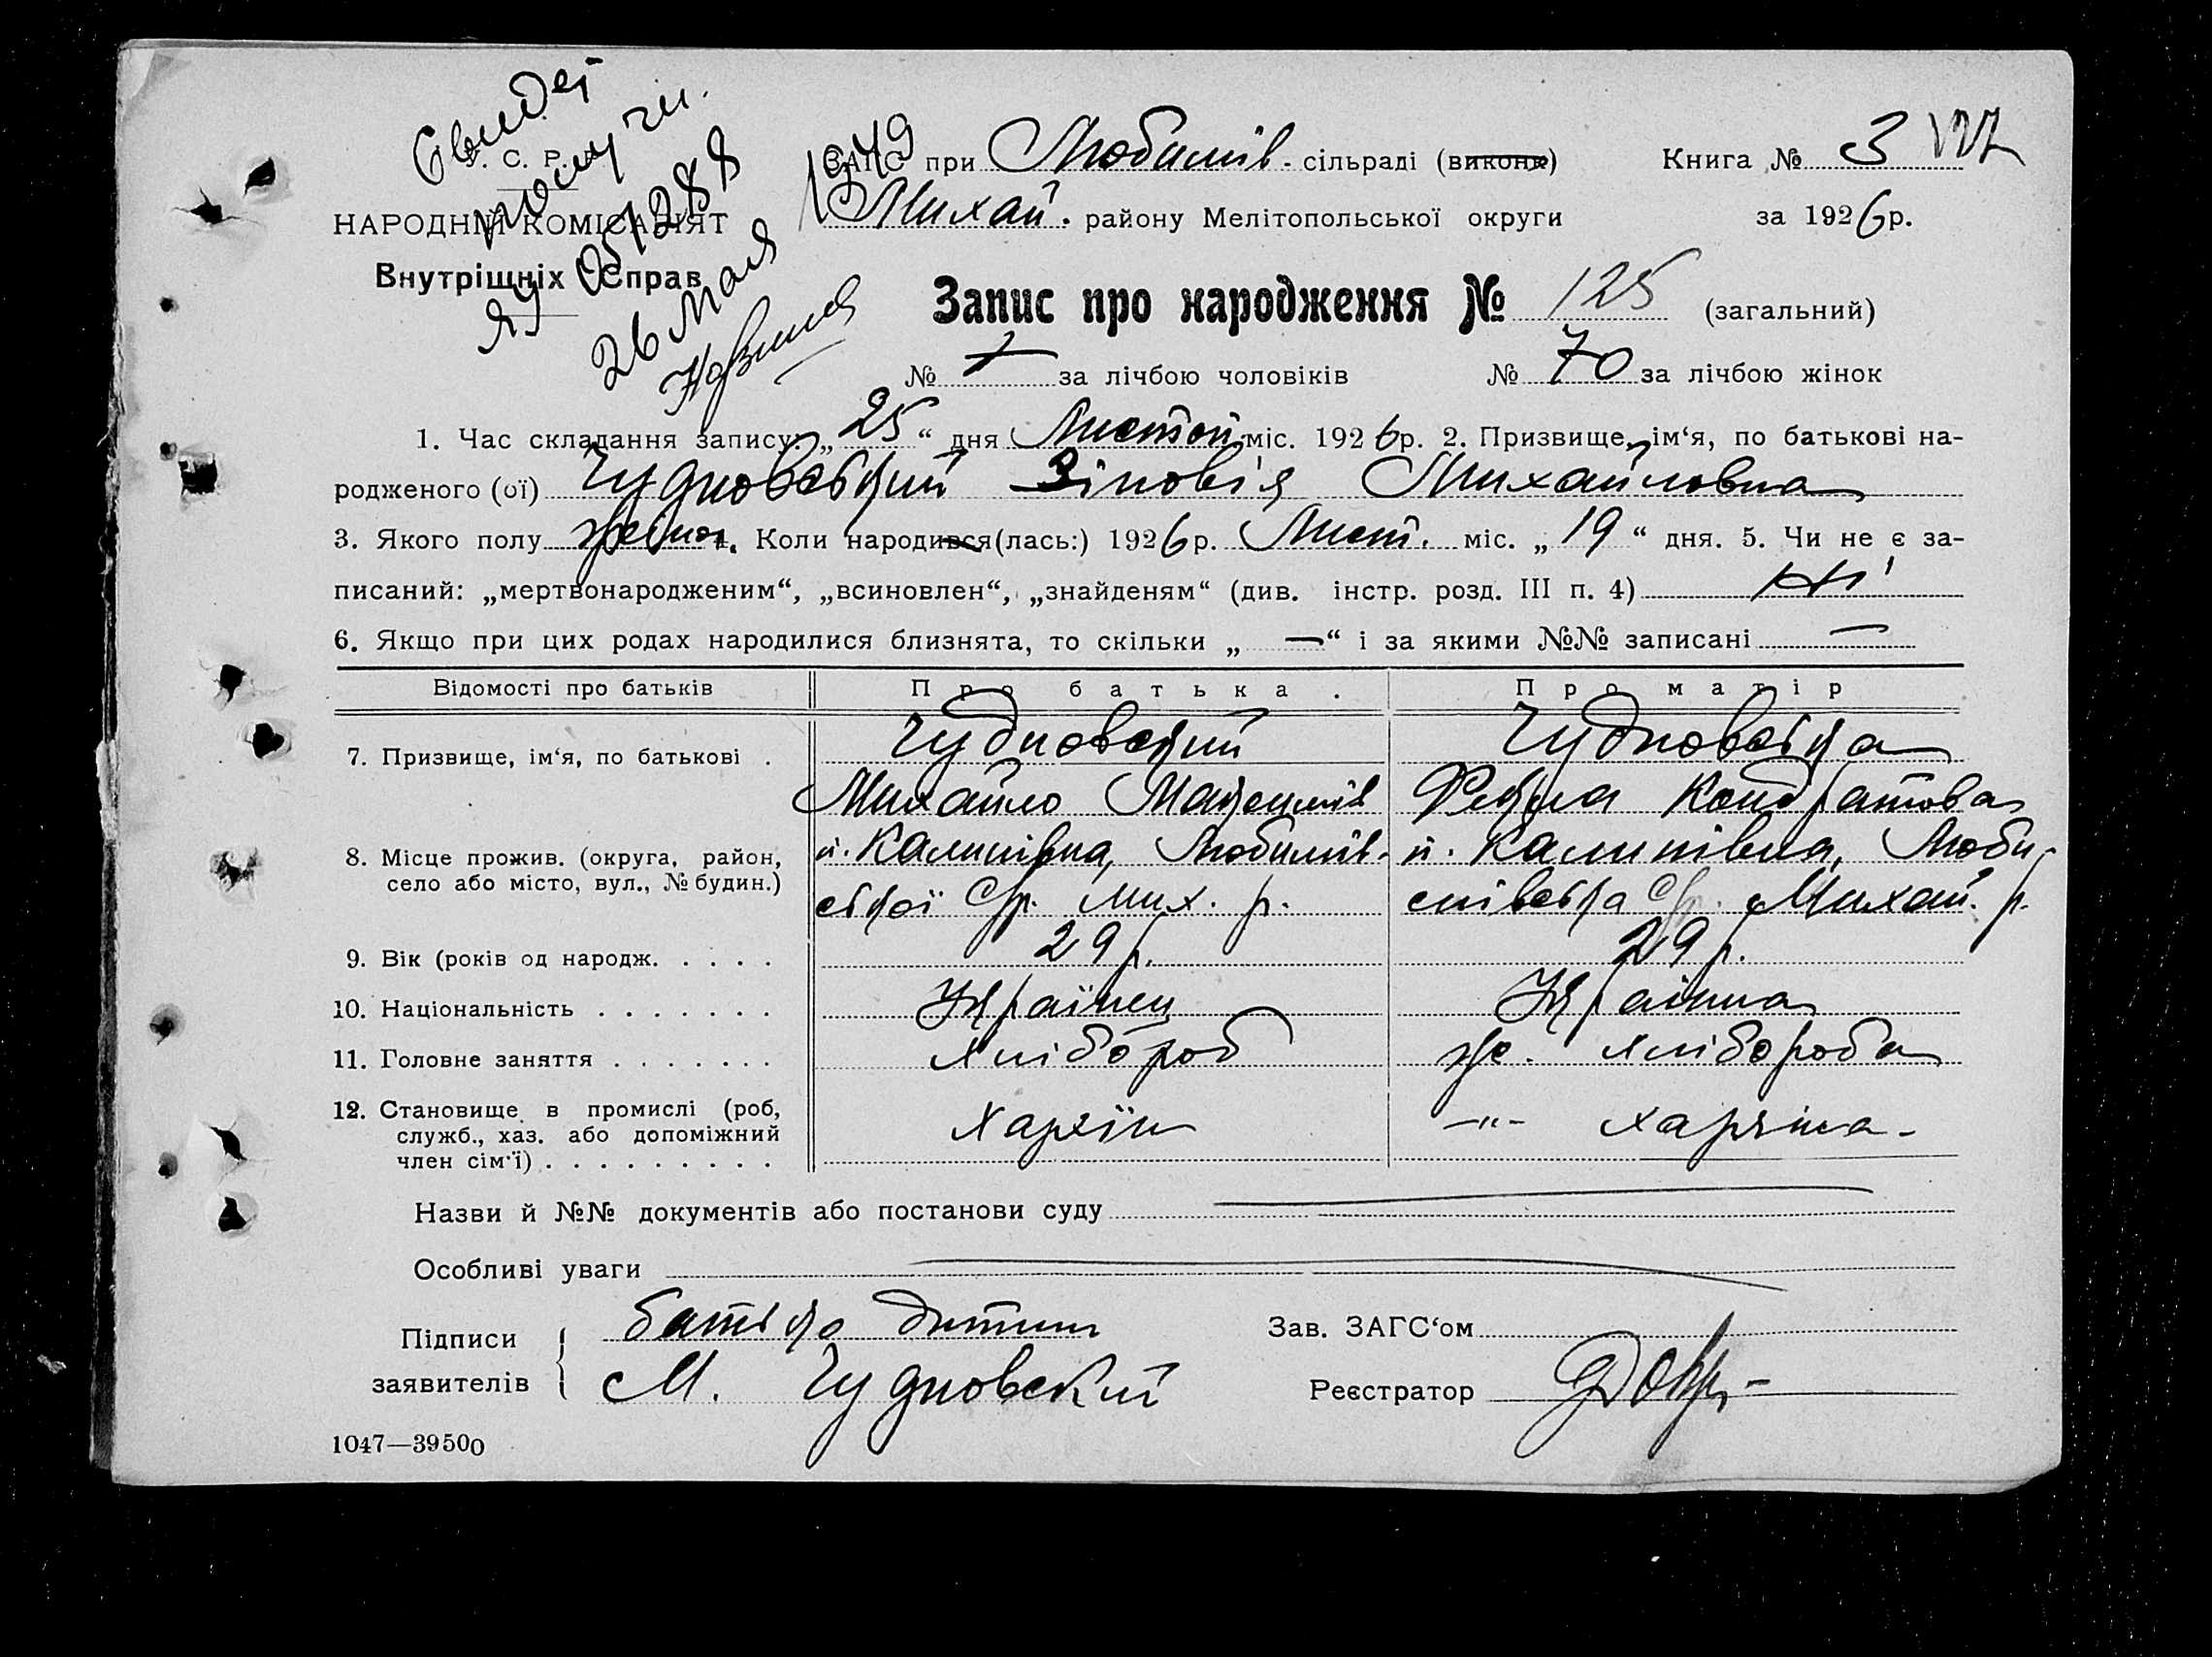 Свидет
получил
ЯУ 051288
26 Мая
1949
У. С. Р. Р.
НАРОДНІЙ КОМІСАРІЯТ
Внутрішніх Справ
ЗАГС при Любимів. сільраді (виконк) Книга № 3
Михай. району Мелітопольської округи за 1926 р.
Запис про народження № 125 (загальний)
№ за лічбою чоловіків № 70 за лічбою жінок
1. Час складання запису: „25“ дня Листоп. міс. 1926 р. 2. Призвище, ім‘я, по батькові на-
родженого (ої) Чудновський Зіновія Михайловна
3. Якого полу жіноч. 4. Коли народився (лась:) 1926 р. Лист. міс. „19“ дня. 5. Чи не є за-
писаний: „мертвонародженим“, „всиновлен“, „знайденям“ (див. інстр. розд. III п. 4) ні
6. Якщо при цих родах народилися близнята, то скільки „—“ і за якими №№ записані —
Відомості про батьків Про батька. Про матір
7. Призвище, ім‘я, по батькові . Чудновский Чудновська
Михайло Максимів Фекла Кондратова
8. Місце прожив. (округа, район, село або місто, вул., № будин.) п. Калинівна, Любимів- п. Калинівна, Люби-
ської С/р. Мих. р. мівська С/р. Михай. р.
9. Вік (років од народж. . . . . 29 р. 29 р.
10. Національність . . . . . . . Українец Українка
11. Головне заняття . . . . . . . хлібороб ж. хлібороба
12. Становище в промислі (роб,
служб., хаз. або допоміжний
член сім‘ї) . . . . . . . . .
Назви й №№ документів або постанови суду
Особливі уваги
Підписи заявителів батько дитини Зав. ЗАГС‘ом
М. Чудновский Реєстратор
1047—39500